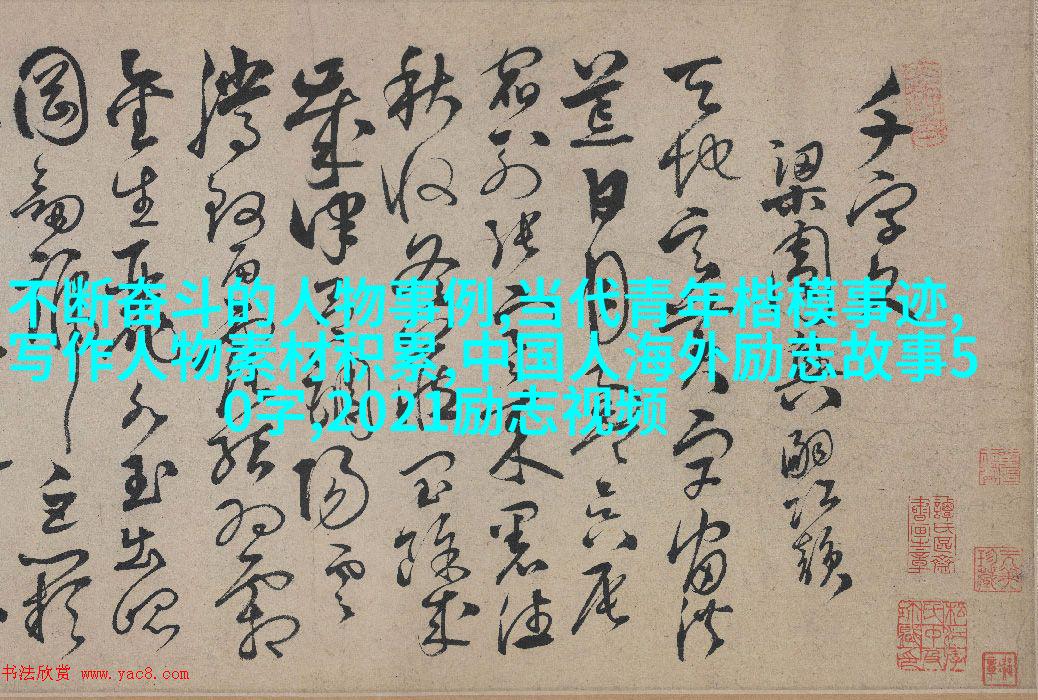 不断奋斗的人物事例,当代青年楷模事迹,
写作人物素材积累,中国人海外励志故事5
0字,2021励志视频
千字文
梁周興嗣次韻
天地玄黃宇宙洪
荒日月盈昃辰
宿列張寒來暑往
秋收冬藏閏餘成
歲律呂調陽雲
騰致雨露結為霜
金生麗水玉出崑
岡劍號巨闕
书法欣赏 www.yac8.com